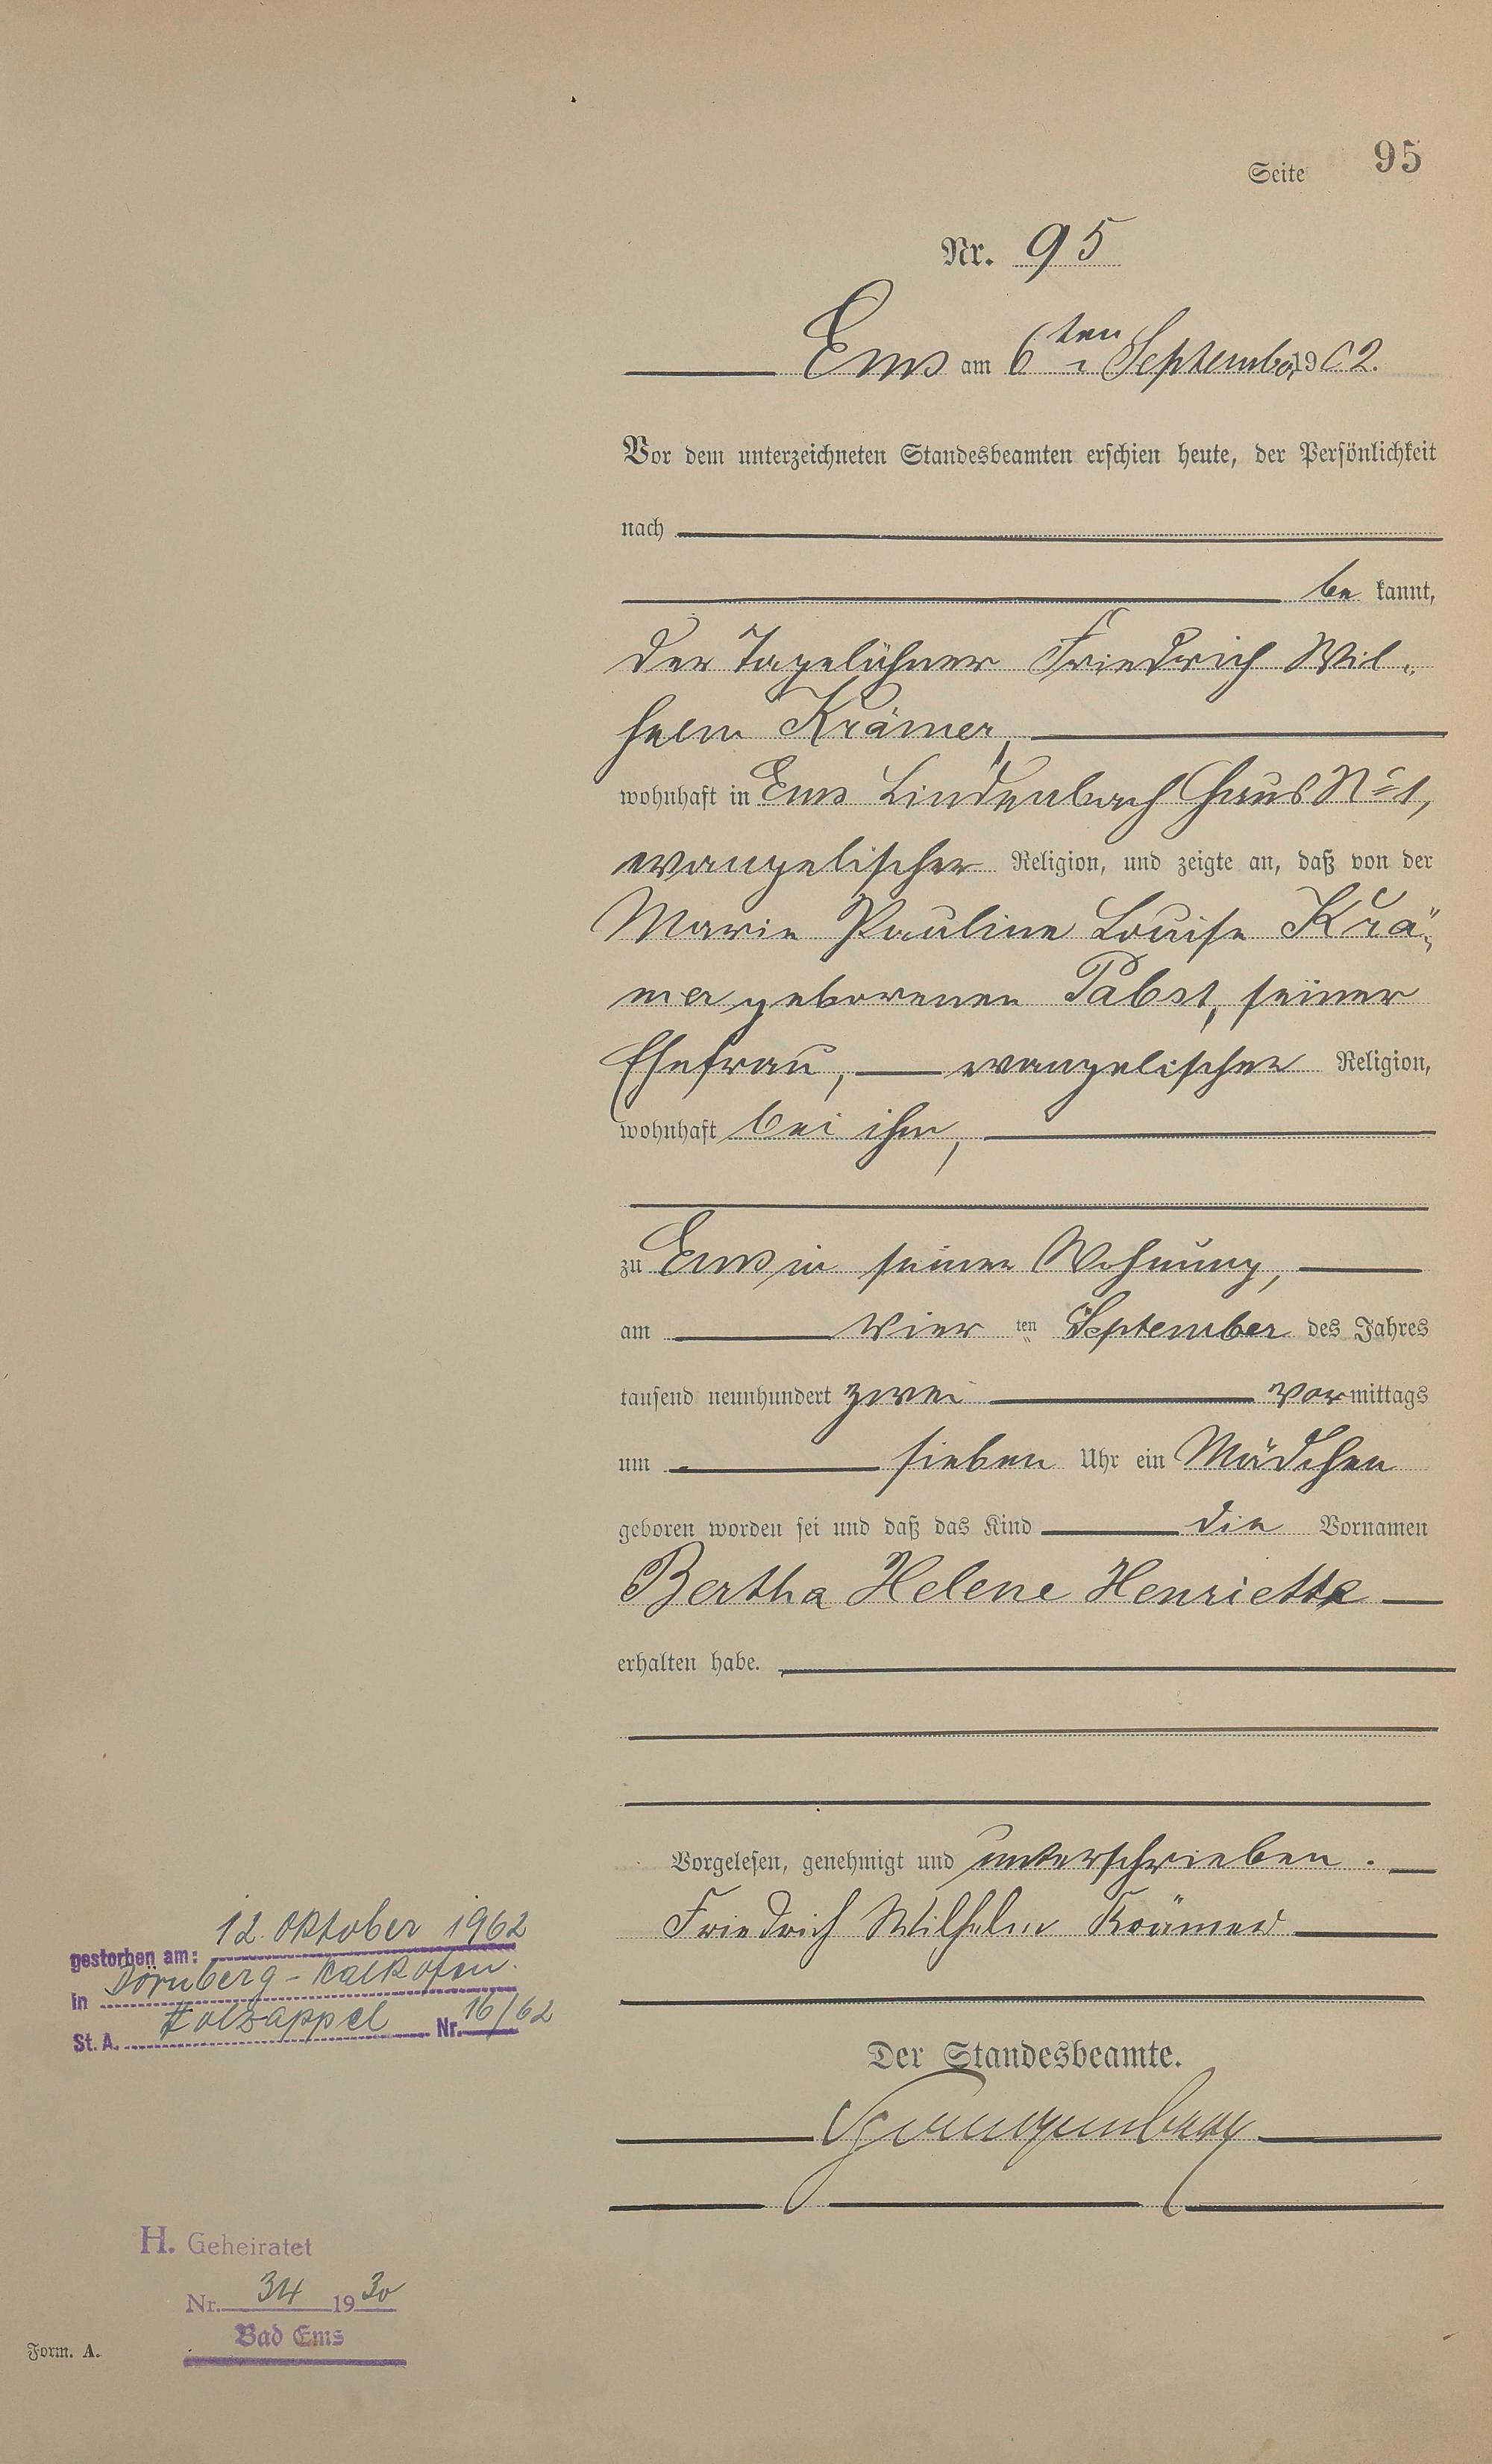 Seite 95
Nr. 95
Ems am 6ten September 1902.
Vor dem unterzeichneten Standesbeamten erschien heute, der Persönlichkeit
nach
be kannt,
der Tagelöhner Friedrich Wil-
helm Krämer,
wohnhaft in Ems Lindenbach Haus No 1,
evangelischer Religion, und zeigte an, daß von der
Marie Pauline Louise Krä-
mer geborenen Pabst, seiner
Ehefrau, evangelischer Religion,
wohnhaft bei ihm,
zu Ems in seiner Wohnung,
am vier ten September des Jahres
tausend neunhundert zwei vormittags
um sieben Uhr ein Mädchen
geboren worden sei und daß das Kind die Vornamen
Bertha Helene Henriette
erhalten habe.
Vorgelesen, genehmigt und unterschrieben.
Friedrich Wilhelm Krämer
Der Standesbeamte.
gestorben am: 12. Oktober 1962
in Dörnberg-Kalkofen.
St. A. Holzappel Nr. 16/62
H. Geheiratet
Nr. 34 1930
Bad Ems
Form. A.